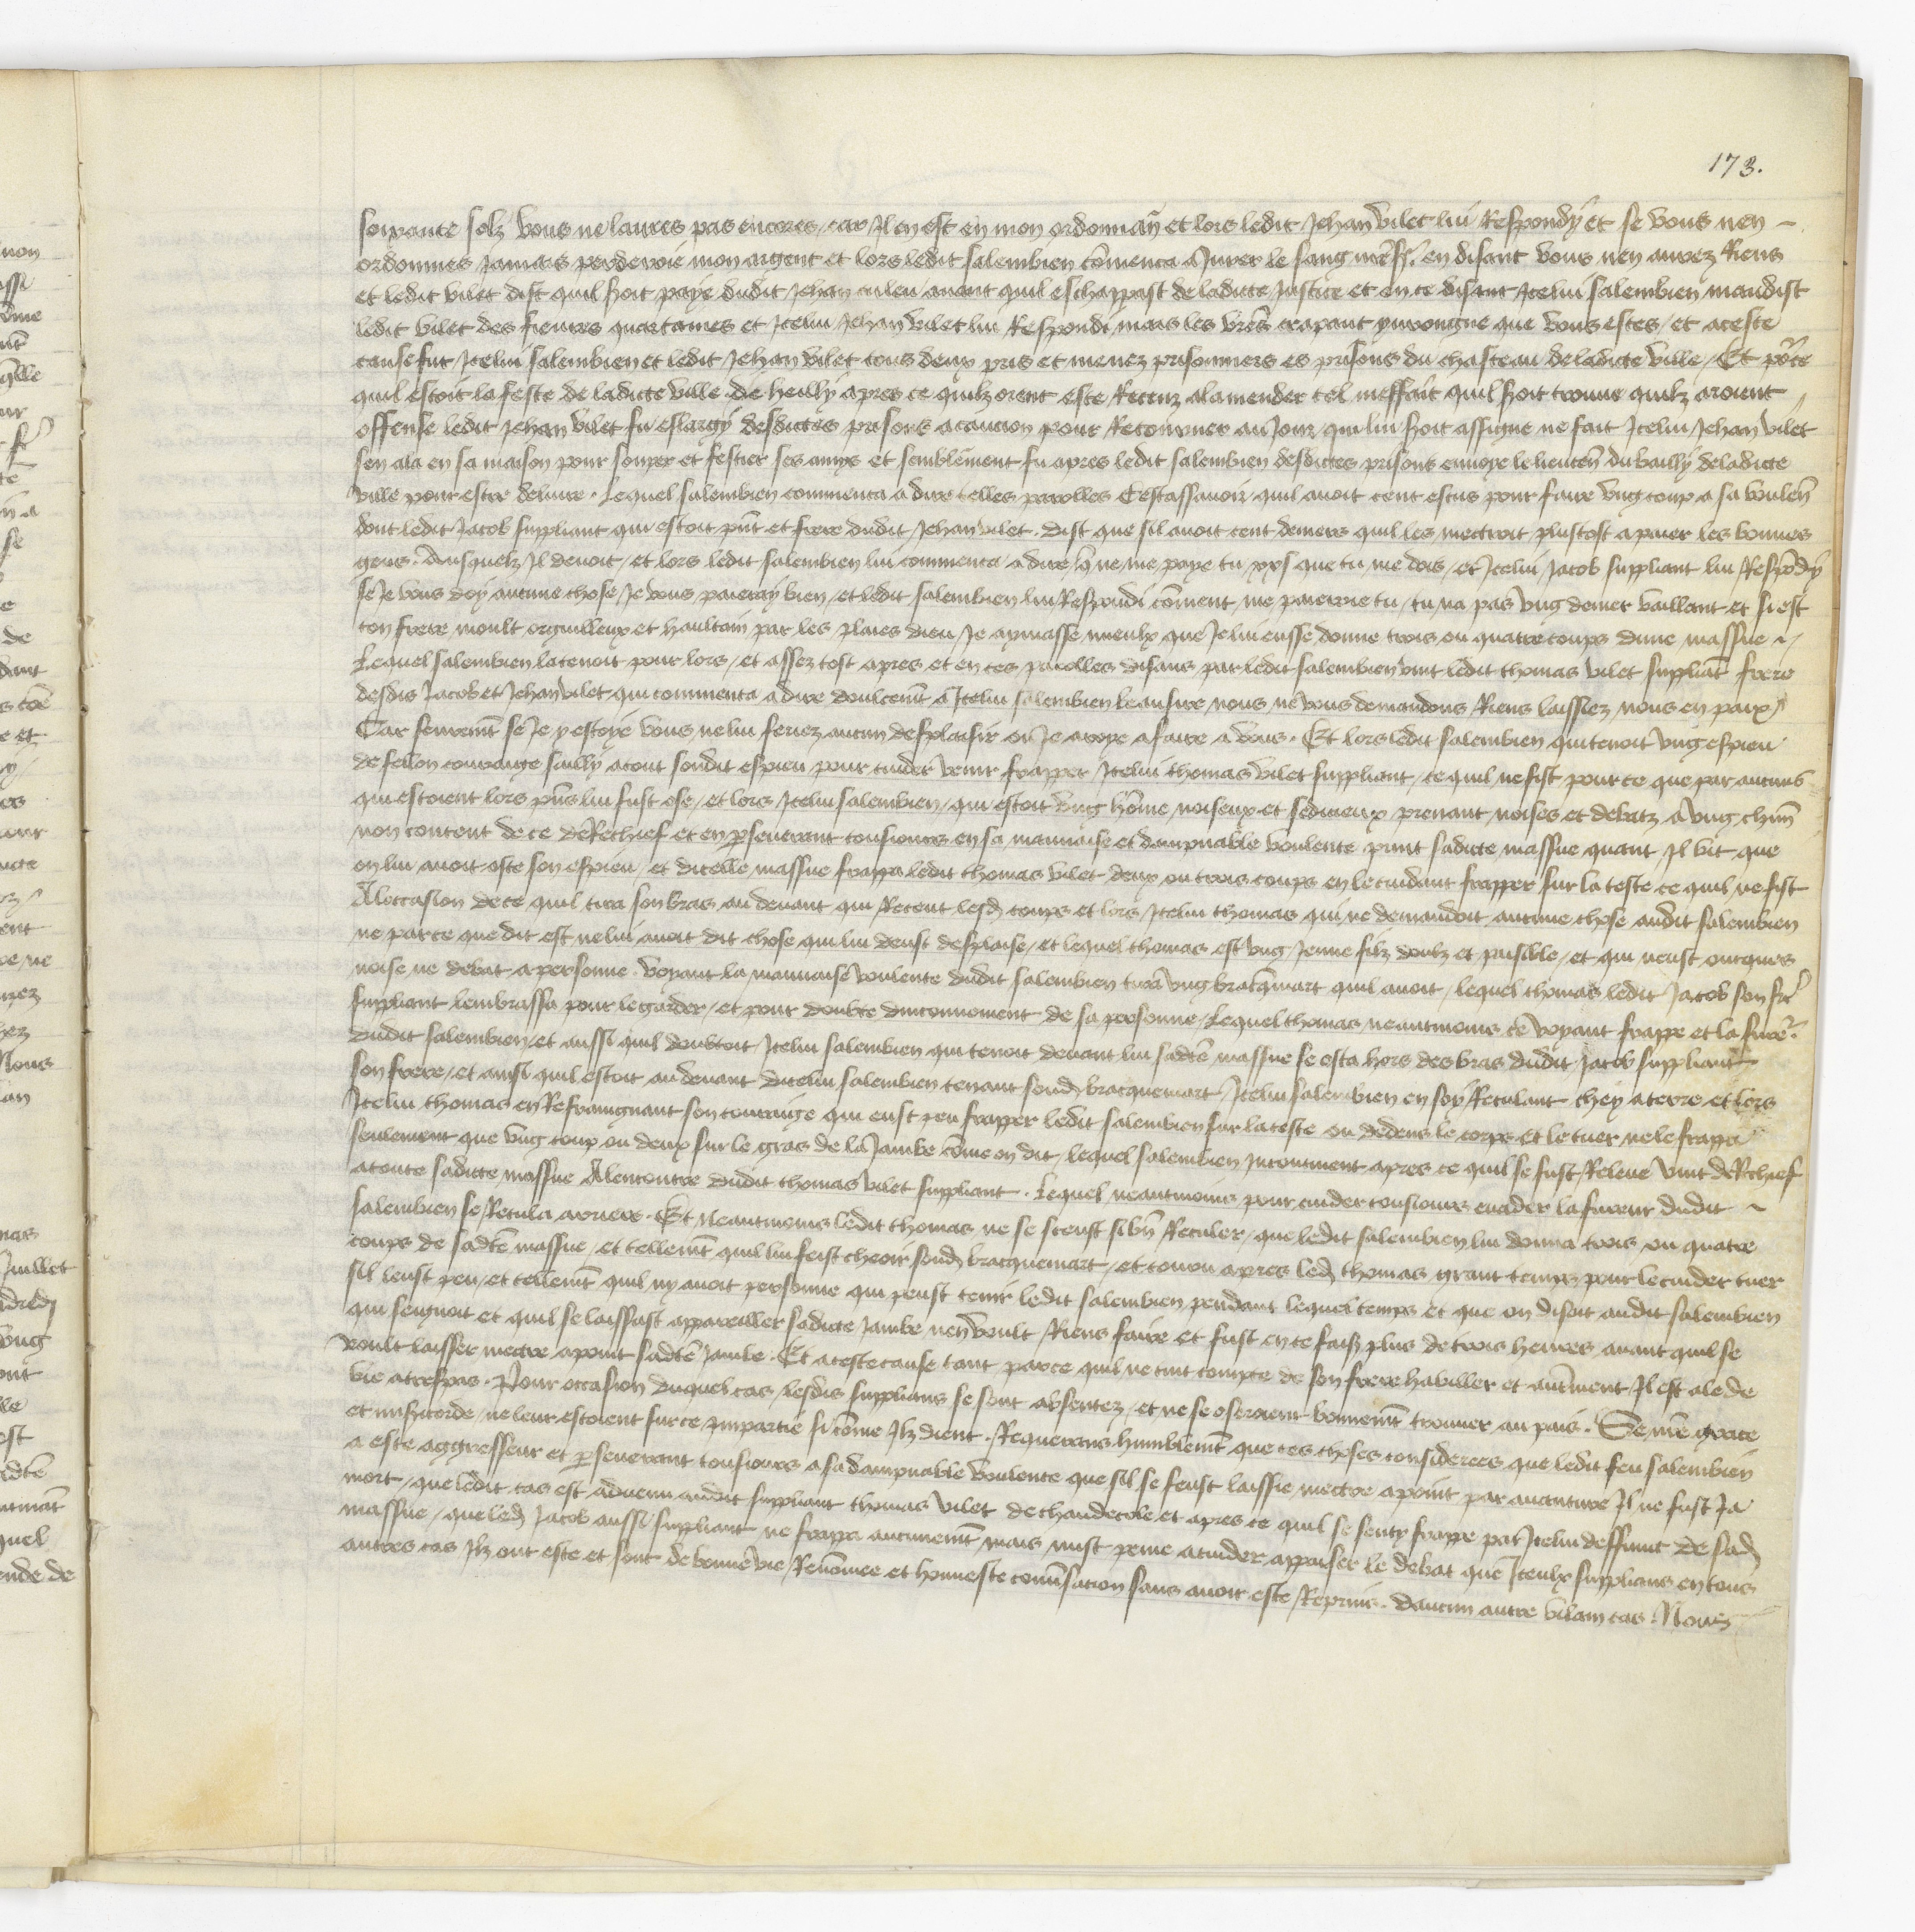 173.
soixante solz vous ne laurez pas encores, car Il en est en mon ordonnan̄ et lors ledit Jehan vilet lui Respondy et se vous nen
ordonnes jamais perderoie mon argent et lors ledit salembien cōmenca a Jurer le sang nr̄e sr̄. en disant vous nen aurez Riens
et ledit vilet dist quil seroit paye dudit Jehan culeu avant quil eschappast de ladicte Justice et en ce disant Icelui salembien maudist
ledit vilet des fieures quartaines et Icelui Jehan vilet lui Respondi, mais les vr̄es crapaut yurongne que vous estes, et a ceste
cause fut Icelui salembien et ledit Jehan vilet tous deux pris et menez prisonniers es prisons du chasteau de ladicte ville, Et po'ce
quil estoit la feste de ladicte ville de heilly apres ce quilz orent este Receuz a lamender tel meffait quil seroit trouue quilz aroient
offense ledit Jehan vilet fu eslargy desdictes prisons a caucion pour Retourner au Jour qui lui seroit assigne, ne fait Icelui Jehan vilet
sen ala en sa maison pour souper et festier ses amys et semblement fu apres ledit salembien desdictes prisons enuoye le lieuten̄ du bailly de ladicte
ville pour estre deliure. Lequel salembien commenca a dire telles parolles Cestassauoir quil auoit cent escus pour faire vng coup a sa voulen̄
dont ledit Jacob suppliant qui estoit pn̄t et frere dudit Jehan vilet. dist que sil auoit cent deniers quil les mectroit plustost a paier les bonnes
gens. Ausquelz Il deuoit, et lors ledit salembien lui commenca a dire q̄ ne me paye tu xxs que tu me dois, et Icelui Jacob suppliant lui Respōdy
se Je vous doy aucune chose Je vous paieray bien, et ledit salembien lui Respondi cōment me paieroie tu, tu na pas vng denier vaillant et si est
ton frere moult orguilleux et haultain par les plaies dieu Je aymasse mieulx que Je lui eusse donne trois ou quatre coups dune massue
Lequel salembien la tenoit pour lors, et assez tost apres et en ces parolles disans par ledit salembien vint ledit thomas vilet suppliāt frere
desdis Jacob et Jehan vilet qui commenca a dire doulcemt̄ a Icelui salembien beau sire, nous ne vous demandons Riens laissiez nous en paix
Car seuremt̄ se Je y estoye vous ne lui feriez aucun desplaisir ou Je aroye a faire a vous. Et lors ledit salembien qui tenoit vng espieu
de fellon courrage sailly a tout sondit espieu pour cuider venir frapper Icelui thomas vilet suppliant, ce quil ne fist pour ce que par aucuns
qui estoient lors pn̄s lui fust oste, et lors Icelui salembien, qui estoit vng hōme noiseux et sedicieux prenant noises et debatz a vng chūn
non content de ce de Rechief et en p̱seuerant tousiours en sa mauuaise et dampnable voulente print sadicte massue quant Il vit que
on lui auoit oste son espieu, et dicelle massue frappa ledit thomas vilet deux ou trois coups en le cuidant frapper sur la teste ce quil ne fist
A loccasion de ce quil tira son bras au deuant qui Receut lesd̄ coups et lors Icelui thomas qui ne demandoit aucune chose audit salembien
ne par ce que dit est ne lui auoit dit chose qui lui deust desplaise, et lequel thomas est vng Jeune filz doulz et paisible, et qui neust oncques
noise ne debat a personne. voyant la mauuaise voulente dudit salembien tira vng bracq̄mart quil auoit, lequel thomas ledit Jacob son fr̄e
suppliant lembrassa pour le garder, et pour doubte dinconueniēt de sa personne, Lequel thomas neantmoins ce voyant frappe et la fureˀ
dudit salembien, et aussi quil doubtoit Icelui salembien qui tenoit deuant lui sadte̅ massue se osta hors des bras dudit Jacob suppliant
son frere, et ainsi quil estoit au deuant dicelui salembien tenant sond̄ bracquemart Icelui salembien en soy Reculant chey a terre et lors
Icelui thomas en Refraingnant son courraige qui eust peu frapper ledit salembien sur la teste ou dedens le corps et le tuer ne le frappa
seulement que vng coup ou deux sur le gras de la Jambe cōme on dit, lequel salembien Incontinent apres ce quil se fust Releue vint de Rechief
a toute sadicte massue A lencontre dudit thomas vilet suppliant. Lequel neantmoins pour cuider tousiours euader la fureur dudit
salembien se Recula arriere. Et Neantmoins ledit thomas ne se sceust si bn̄ Reculer, que ledit salembien lui donna trois ou quatre
coups de sadte̅ massue, et tellemt̄ quil lui feist cheoir sond̄ bracquemart, et couru apres led̄ thomas grant temps pour le cuider tuer
sil leust peu, et tellemt̄ quil ny auoit personne qui peust tenir ledit salembien, pendant lequel temps et que on disoit audit salembien
qui seignoit et quil se laissast appareillier sadicte Jambe nen voult Riens faire et fust en ce faisˀ plus de trois heures auant quil se
voult laisser mectre a point sadte̅ Jambe. Et a ceste cause tant par ce quil ne tint compte de son frere habiller et autˀment Il est ale de
vie a trespas. Pour occasion duquel cas, lesdis supplians se sont absentez, et ne se oseroient bonnemt̄ trouuer au pais. Se nr̄e grace
et mis̄icorde ne leur estoient sur ce Impartie si cōme Ilz dient. Requerans humblemt̄ que ces choses considerees que ledit feu salembien
a este aggresseur et p̱seuerant tousiours a sa dampnable voulente que sil se feust laissie mectre a point par auenture Il ne fust Ja
mort, que ledit cas est aduenu audit suppliant thomas vilet de chaudecole et apres ce quil se senty frappe par Icelui deffunct de sad̄
massue, que led̄ Jacob aussi suppliant ne frappa aucunemt̄ mais mist peine a cuider appaiser le debat que Iceulx supplians en tous
autres cas Ilz ont este et sont de bonne vie Renōmee et honneste conu̅sacion sans auoir este Reprins. daucun autre vilain cas. Nous